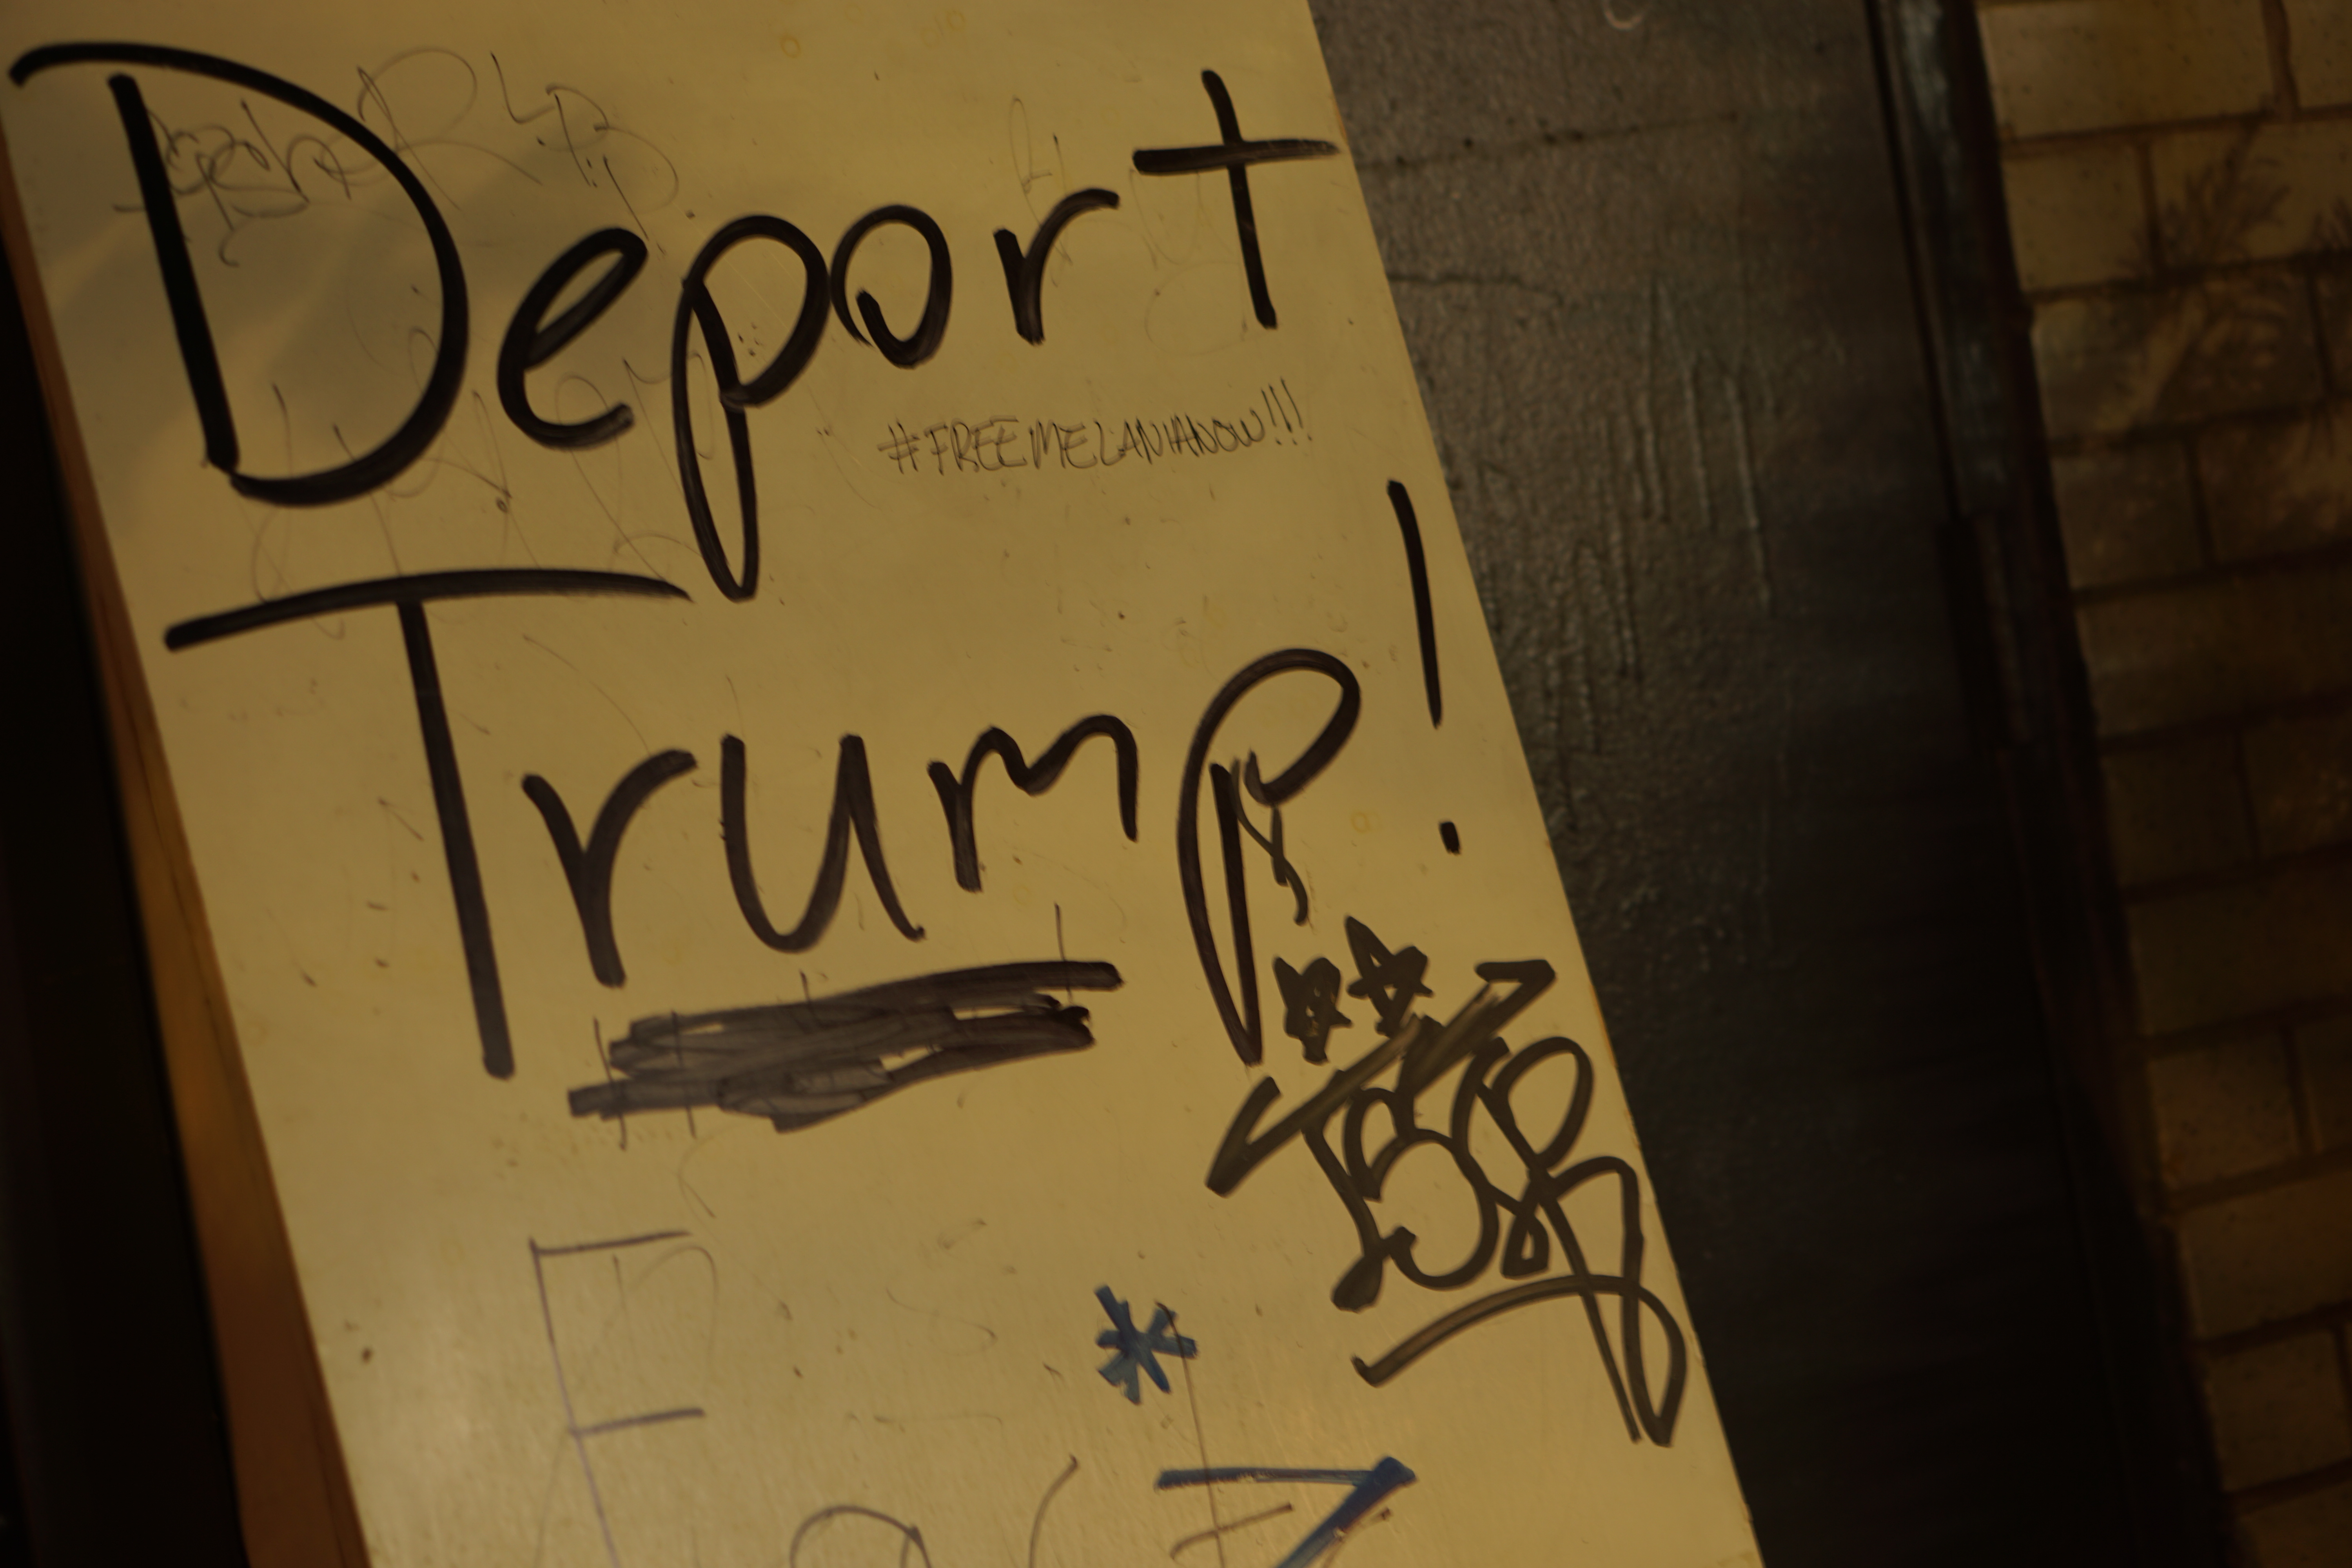 Deport
#FREEMELANIANOW!!!
Trump!